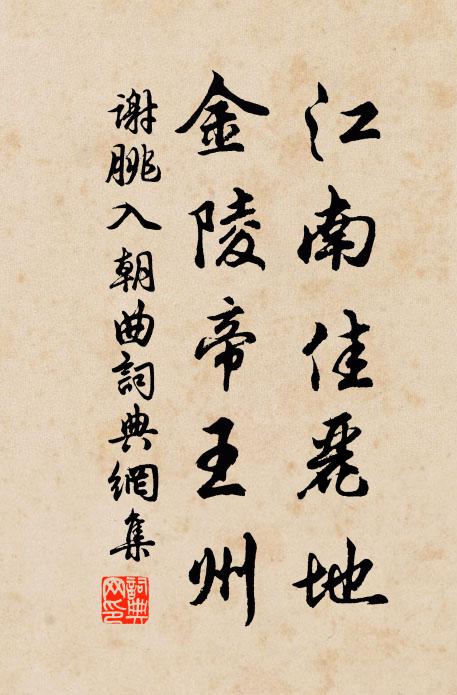 江南佳麗地
金陵帝王州
謝朓入朝曲詞典網集
詞典網印